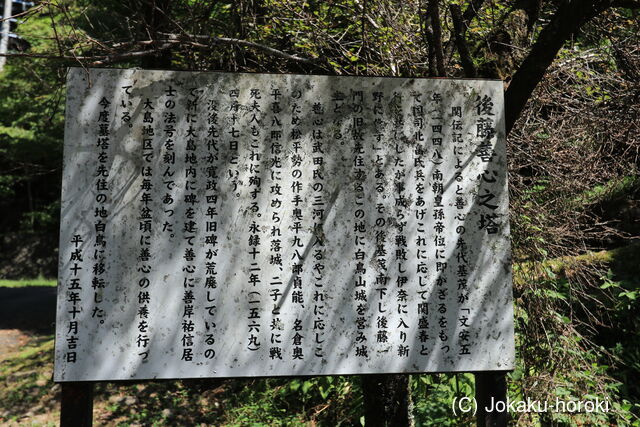 後藤善心之塔
関伝記によると善心の先代基茂が「文安五
年(一四四八)南朝皇孫帝位に即かざるをもっ
て国司北畠氏兵をあげこれに応じて関盛春と
行を共にしたが事成らず戦敗し伊奈に入り新
野に住す」とある。その後基茂南下し後藤一
門の旧故先住するこの地に白鳥山城を営み城
主となる。
善心は武田氏の三河に入るやこれに応じこ
のため松平勢の作手奥平九八郎貞能、名倉奥
平喜八郎信光に攻められ落城、二子と共に戦
死夫人もこれに殉ずる。永録十二年(一五六九)
四月十七日という。
没後先代が寛政四年旧碑が荒廃しているの
で新に大島地内に碑を建て善心に善岸祐信居
士の法号を刻んであった。
大島地区では毎年盆頃に善心の供養を行っ
ている。
今度墓塔を先住の地白鳥に移転した。
平成十五年十月吉日
(C) Jokaku-horoki